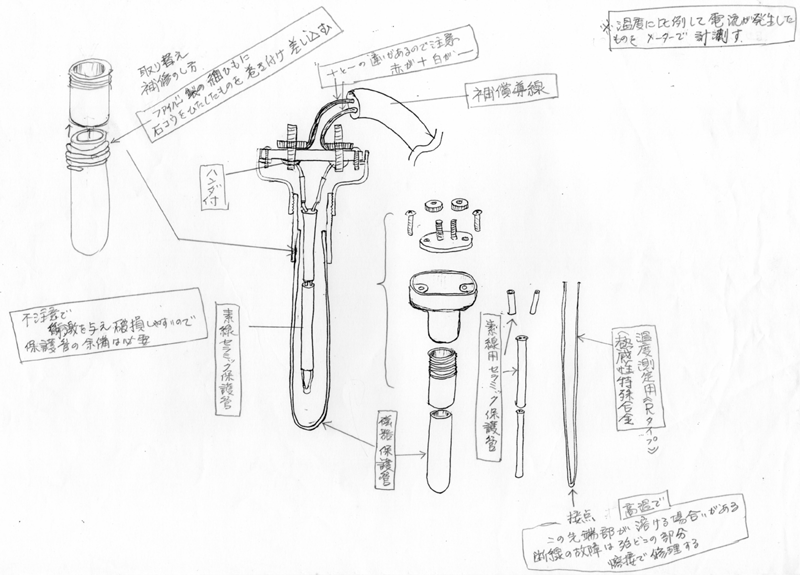 ※温度に比例して電流が発生した
ものをメーターで計測す
取り替え
補修のし方
ファイバー製の細ひもに
石コウをひたしたものを巻き付け差し込む
+と−の違いがあるので注意
赤が+白が−
補償導線
ハンダ付
不注意で
衝激を与え破損しやすいので
保護管の予備は必要
素線セラミック保護管
磁器保護管
素線用セラミック保護管
温度測定用《Rタイプ》
(極感性特殊合金
接点
高温で
この先端部が溶ける場合がある
断線の故障は殆どこの部分
熔接で修理する